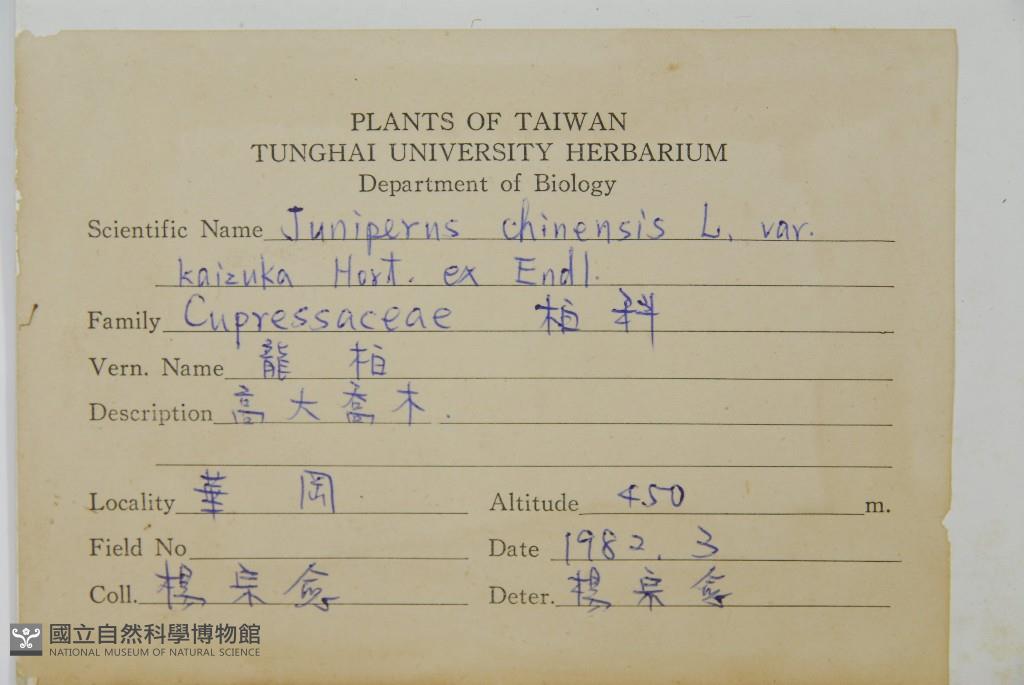 PLANTS OF TAIWAN
TUNGHAI UNIVERSITY HERBARIUM
Department of Biology
Scientific Name Juniperus chinensis L. var.
kaizuka Hort. ex Endl.
Family Cupressaceae 柏科
Vern. Name 龍柏
Description 高大喬木.
Locality 華岡 Altitude 450 m.
Field No
Date 1982. 3
Coll. 楊宗愈 Deter. 楊宗愈
國立自然科學博物館
NATIONAL MUSEUM OF NATURAL SCIENCE